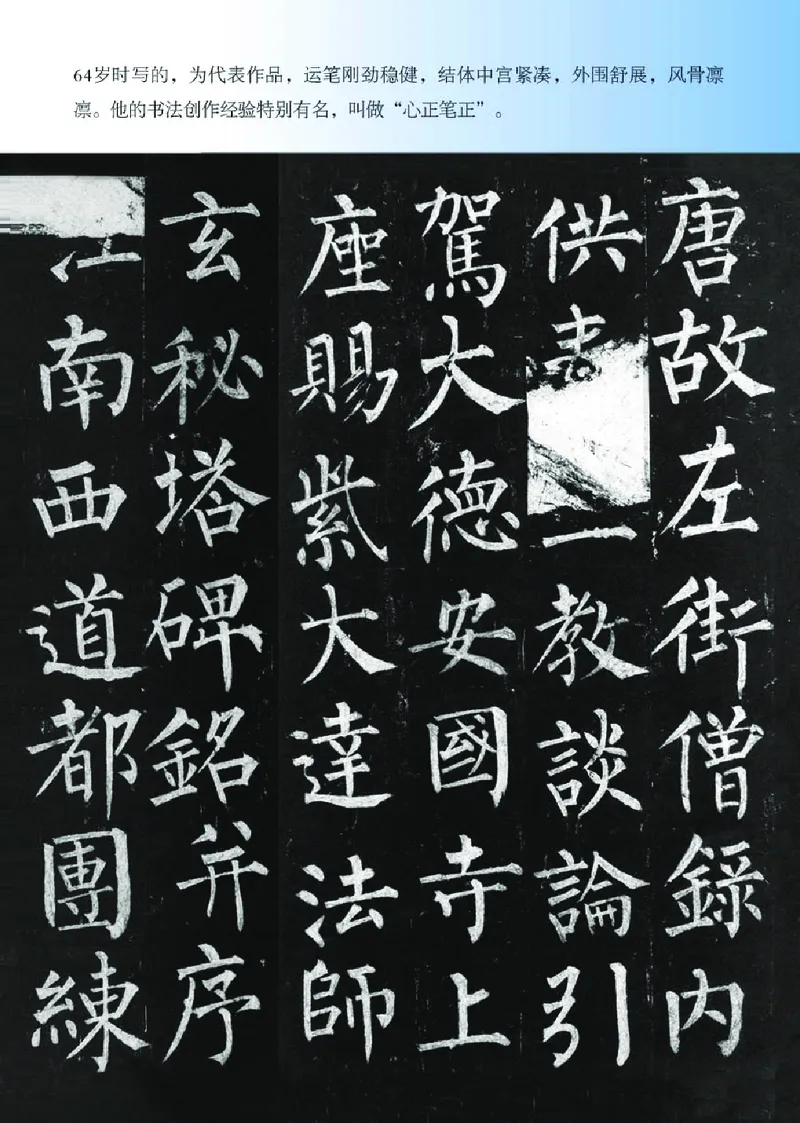 64岁时写的，为代表作品，运笔刚劲稳健，结体中宫紧凑，外围舒展，风骨凛
凛。他的书法创作经验特别有名，叫做“心正笔正”。
唐故左街僧錄内
供一教談論引
駕大德安國寺上
座賜紫大達法師
玄秘塔碑銘并序
江南西道都團練